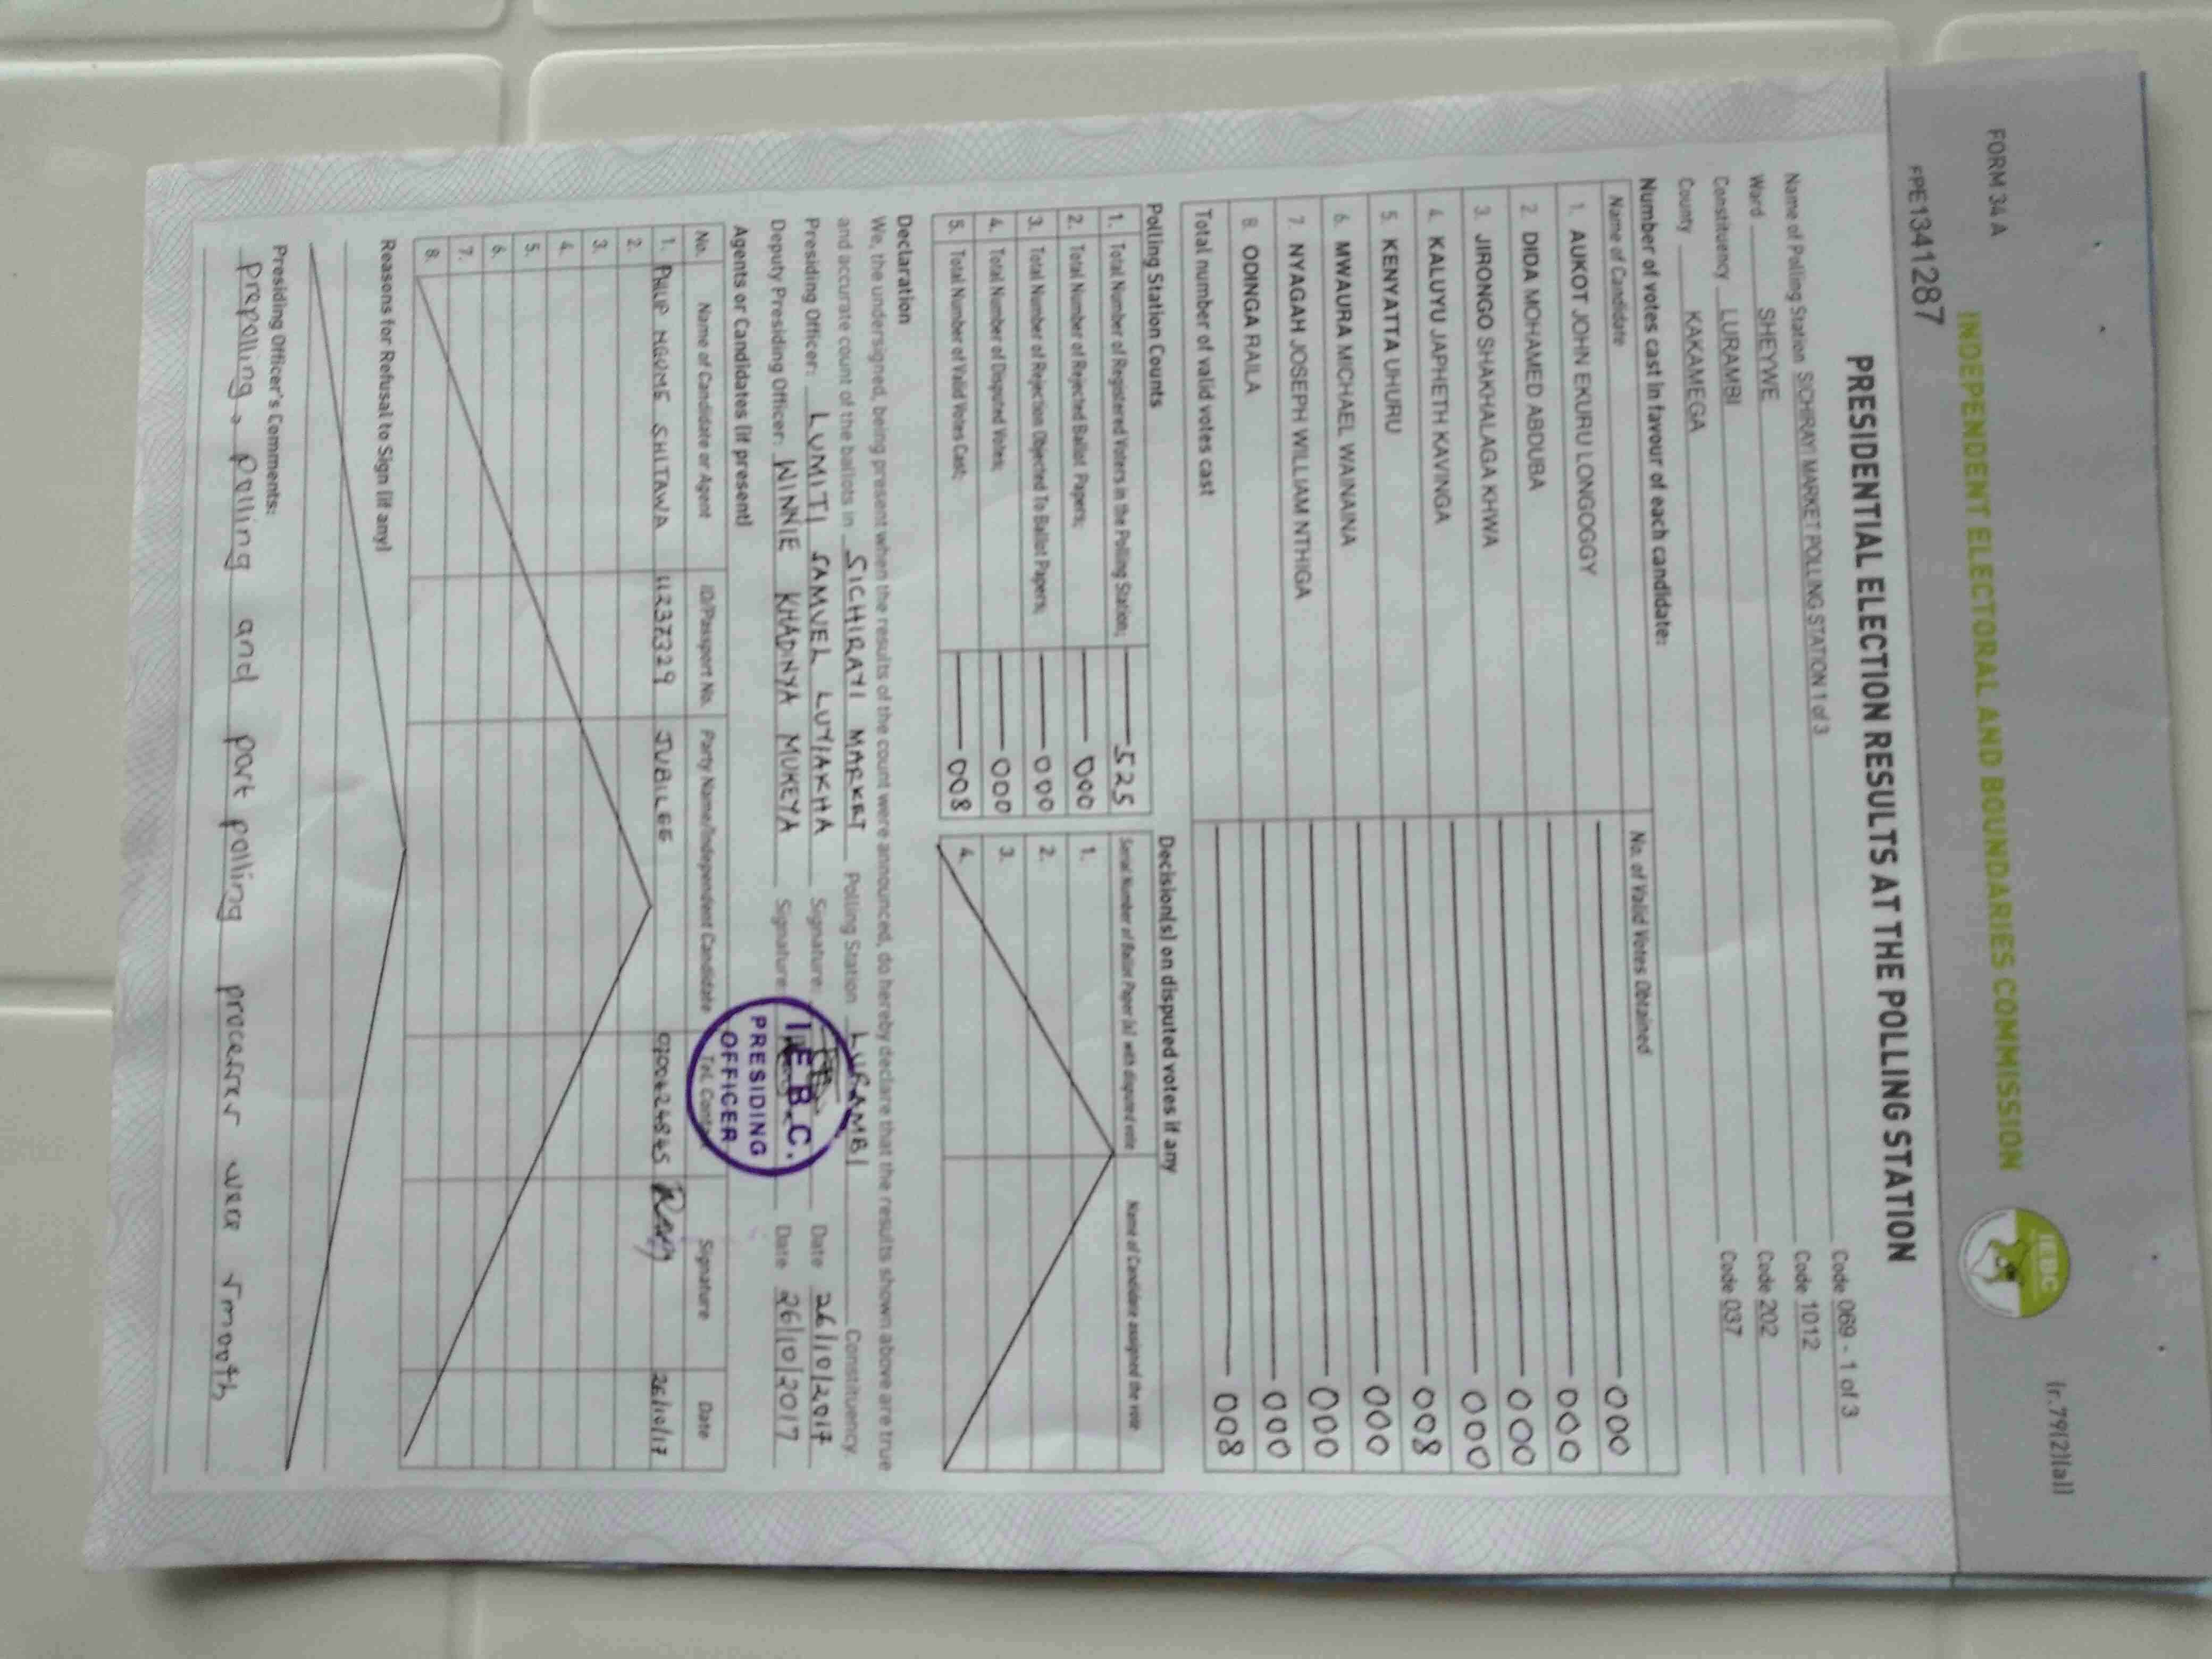 FORM 34 A
(r.79(2)(a))
INDEPENDENT ELECTORAL AND BOUNDARIES COMMISSION
IEBC
FPE1341287
PRESIDENTIAL ELECTION RESULTS AT THE POLLING STATION
Name of Polling Station SICHIRAYI MARKET POLLING STATION 1 of 3 Code 069 - 1 of 3
Ward SHEYWE Code 1012
Constituency LURAMBI Code 202
County KAKAMEGA Code 037
Number of votes cast in favour of each candidate:
Name of Candidate No. of Valid Votes Obtained
1. AUKOT JOHN EKURU LONGOGGY 000
2. DIDA MOHAMED ABDUBA 000
3. JIRONGO SHAKHALAGA KHWA 000
4. KALUYU JAPHETH KAVINGA 000
5. KENYATTA UHURU 008
6. MWAURA MICHAEL WAINAINA 000
7. NYAGAH JOSEPH WILLIAM NTHIGA 000
8. ODINGA RAILA 000
Total number of valid votes cast 008
Polling Station Counts
1. Total Number of Registered Voters in the Polling Station; 525
2. Total Number of Rejected Ballot Papers; 000
3. Total Number of Rejection Objected To Ballot Papers; 000
4. Total Number of Disputed Votes; 000
5. Total Number of Valid Votes Cast; 008
Decision(s) on disputed votes if any
Serial Number of Ballot Paper (s) with disputed vote Name of Candidate assigned the vote
1.
2.
3.
4.
Declaration
We, the undersigned, being present when the results of the count were announced, do hereby declare that the results shown above are true
and accurate count of the ballots in SICHIRAYI MARKET Polling Station LURAMBI Constituency.
Presiding Officer: LUMITI SAMUEL LUYIAKHA Signature: Date 26/10/2017
Deputy Presiding Officer: WINNIE KHADINYA MUKEYA Signature: Date 26/10/2017
I.E.B.C.
PRESIDING
OFFICER
Agents or Candidates (if present)
No. Name of Candidate or Agent ID/Passport No. Party Name/Independent Candidate Tel. Contact Signature Date
1. PHILIP NGOME SHITAWA 11237329 JUBILEE 0700624845 26/10/17
2.
3.
4.
5.
6.
7.
8.
Reasons for Refusal to Sign (if any)
Presiding Officer's Comments:
prepolling, polling and post polling processes were smooth